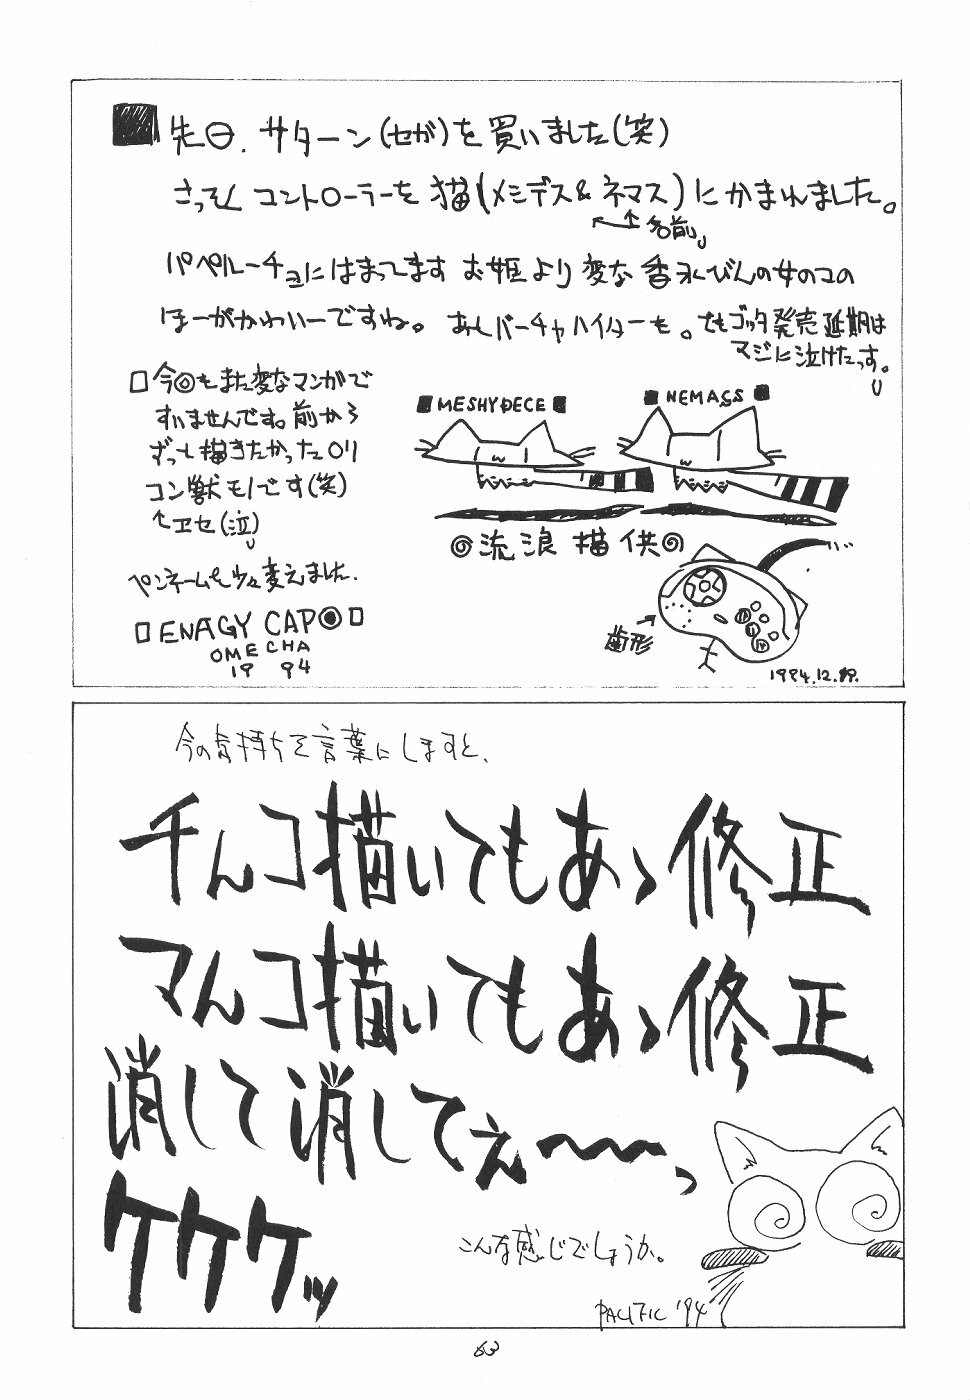 先日、サターン(セガ)を買いました(笑)
さっそく コントローラーを 猫(メシデス&ネマス)にかまれました。
名前
パペルーチョにはまってます お姫より 変な香水びんの女のコの
ほーがかわいーですね。 あとバーチャハイスコーも。でもゴッタ発売延期は
マジに泣けたっす。
今回もまた変なマンガで
すいませんです。前から
ずっと描きたかったロリ
コン獣モノです(笑)
エセ(泣)
ペンネームを少々変えました。
ENAGY CAP
OMECHA
19 94
MESHYDECE
NEMASS
流浪猫供
歯形
1994.12.29.
今の気持ちを言葉にしますと、
チんコ描いてもあゝ修正
マんコ描いてもあゝ修正
消して消してえ〜〜っ
ケケケッ
こんな感じでしょうか。
PACIFIC '94
63